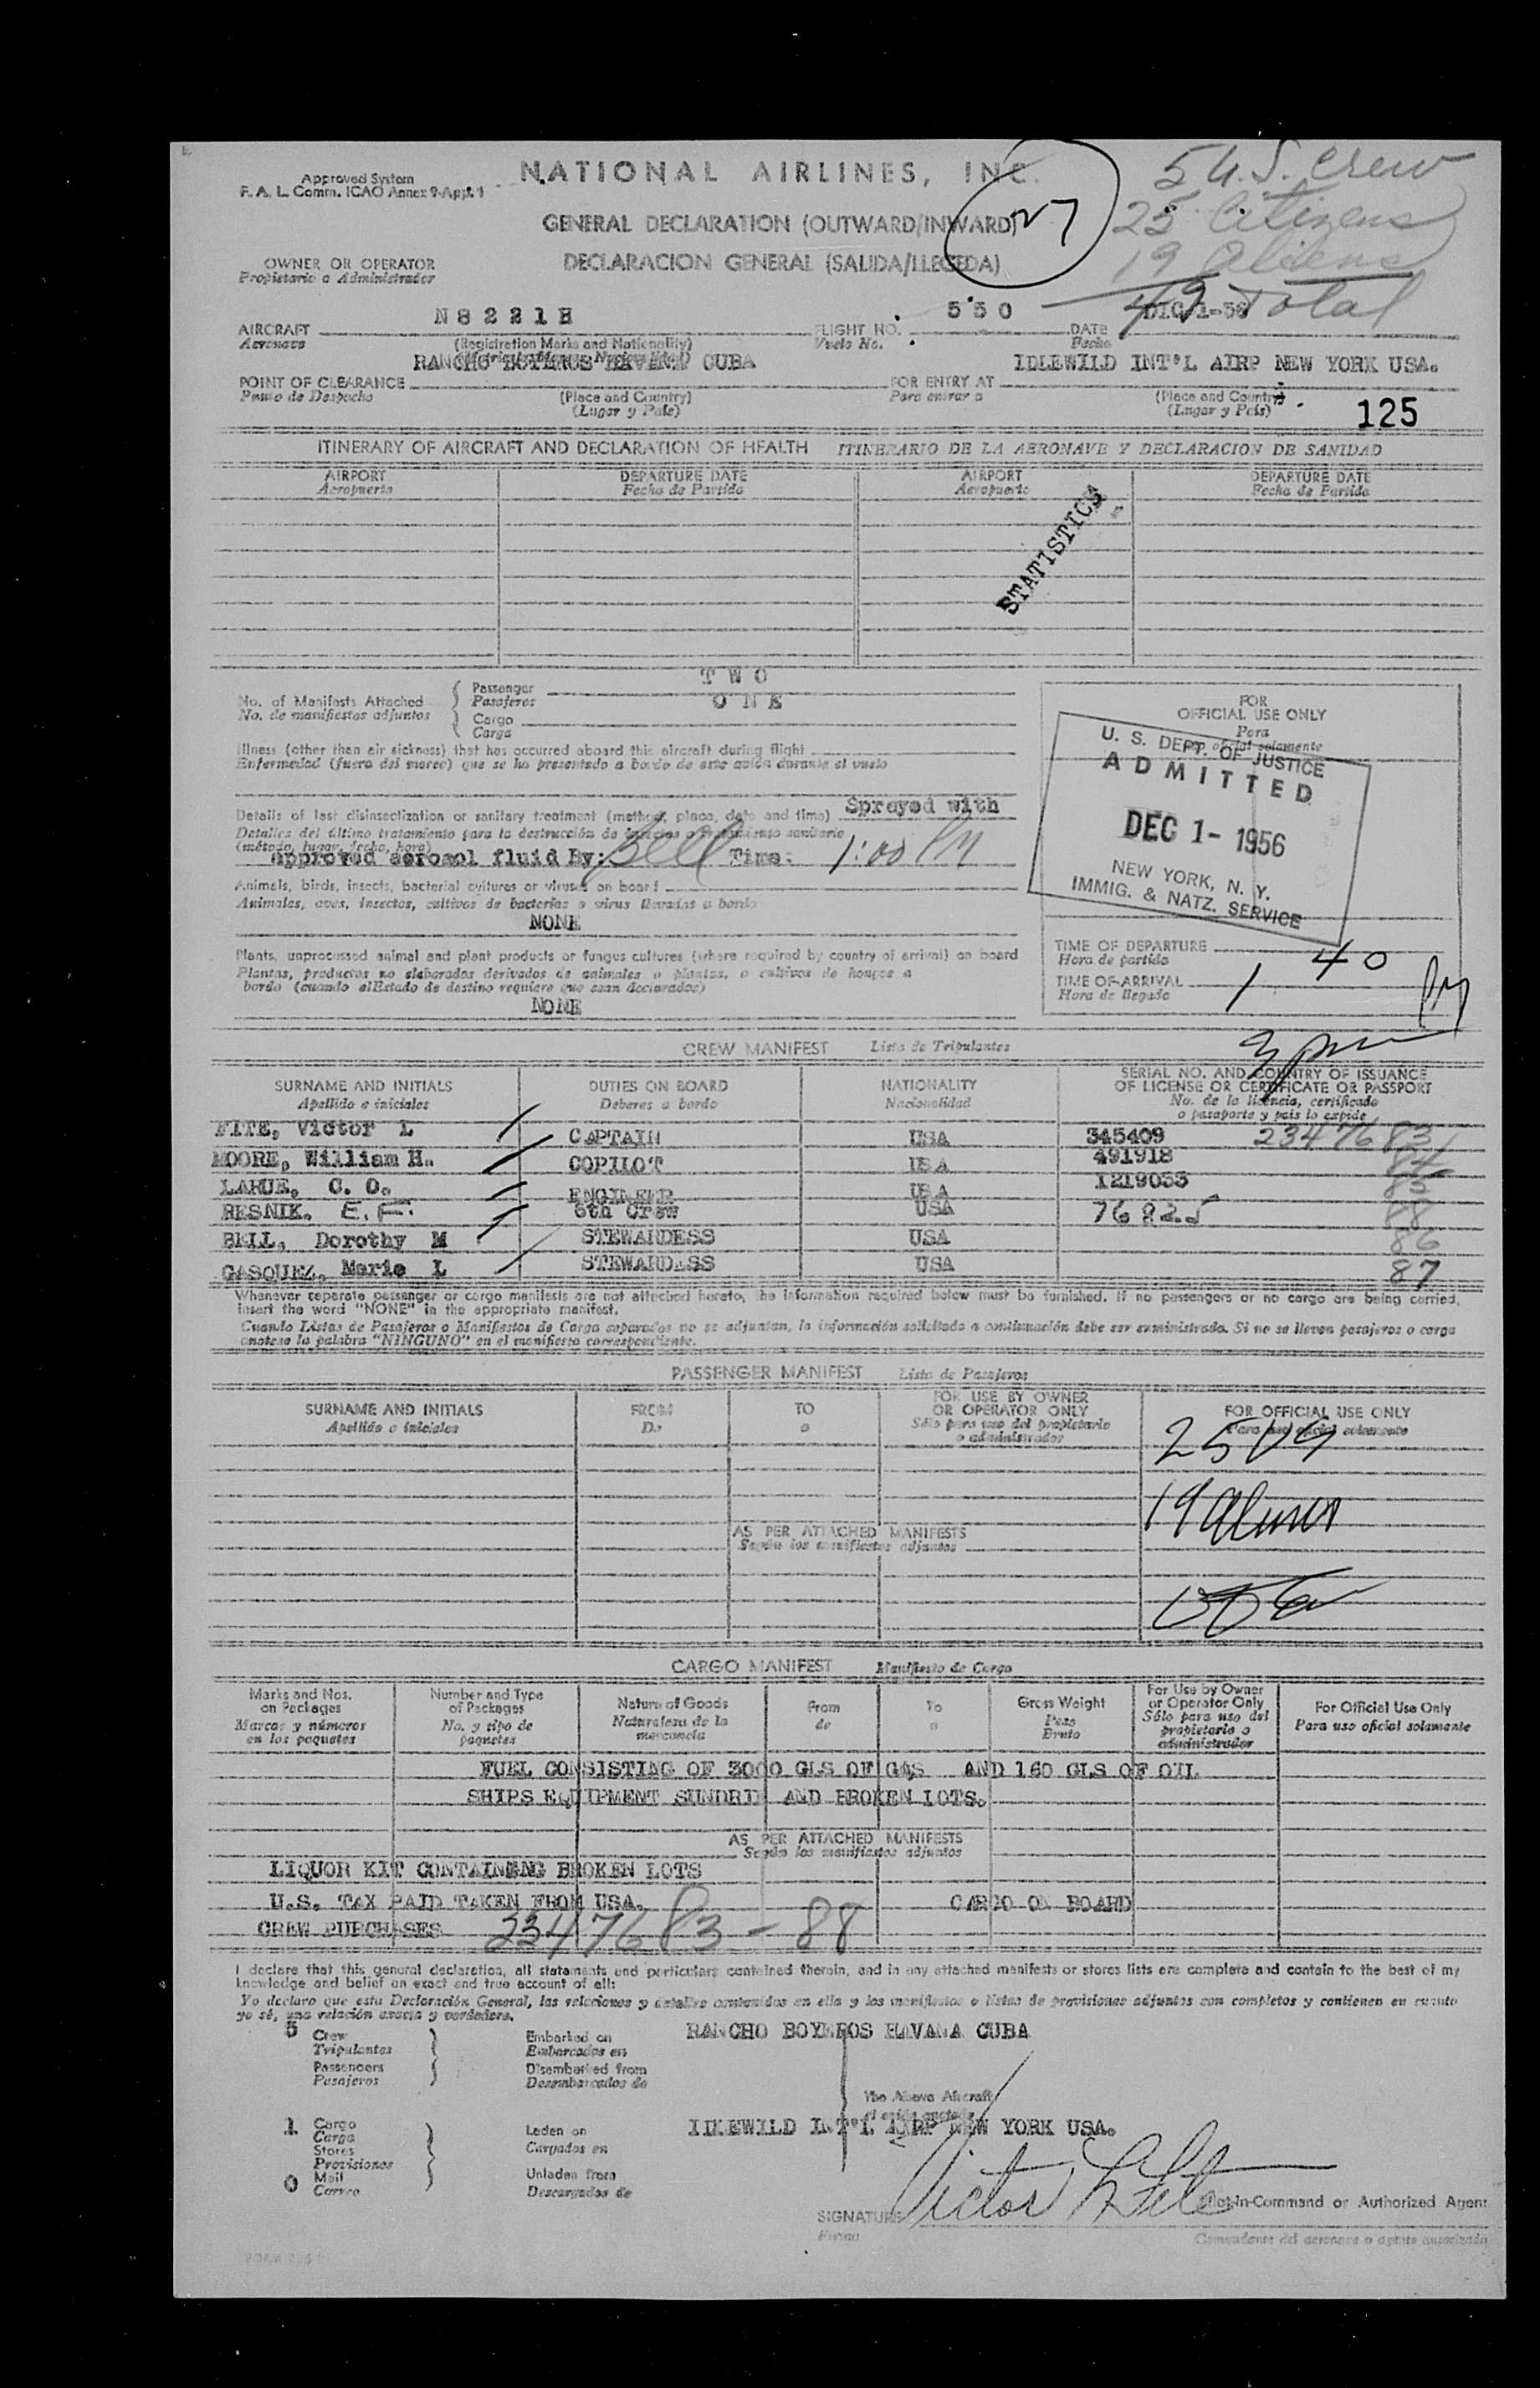 NATIONAL AIRLINES, INC.
Approved System
F. A. L. Comm. ICAO Annex 9-App. 1
5 U.S. Crew
25 Citizens
19 Aliens
49 Total
GENERAL DECLARATION (OUTWARD/INWARD)
DECLARACION GENERAL (SALIDA/LLEGEDA)
OWNER OR OPERATOR
Propietario o Administrador
AIRCRAFT N8221H FLIGHT NO. 550 DATE DIC/1-56
Aeronave (Registration Marks and Nationality) Vuelo No. Fecha
RANCHO BOYEROS HAVANA CUBA IDLEWILD INT'L AIRP NEW YORK USA.
POINT OF CLEARANCE FOR ENTRY AT
Punto de Despacho (Place and Country) Para entrar a (Place and Country)
(Lugar y País) (Lugar y País)
125
ITINERARY OF AIRCRAFT AND DECLARATION OF HEALTH ITINERARIO DE LA AERONAVE Y DECLARACION DE SANIDAD
AIRPORT DEPARTURE DATE AIRPORT DEPARTURE DATE
Aeropuerto Fecha de Partida Aeropuerto Fecha de Partida
STATISTICS
No. of Manifests Attached Passenger TWO
No. de manifiestos adjuntos Pasajeros ONE
Cargo
Carga
FOR
OFFICIAL USE ONLY
Para
uso oficial solamente
U. S. DEPT. OF JUSTICE
ADMITTED
DEC 1- 1956
NEW YORK, N. Y.
IMMIG. & NATZ. SERVICE
Illness (other than air sickness) that has occurred aboard this aircraft during flight
Enfermedad (fuera del mareo) que se ha presentado a bordo de este avión durante el vuelo
Details of last disinsectization or sanitary treatment (method, place, date and time) Sprayed with
Detalles del último tratamiento para la destrucción de insectos o tratamiento sanitario
(método, lugar, fecha, hora)
approved aerosol fluid By: Bell Time: 1:00 PM
Animals, birds, insects, bacterial cultures or viruses on board
Animales, aves, insectos, cultivos de bacterias o virus llevados a bordo
NONE
Plants, unprocessed animal and plant products or fungus cultures (where required by country of arrival) on board
Plantas, productos no elaborados derivados de animales o plantas, o cultivos de hongos a
bordo (cuando elEstado de destino requiere que sean declarados)
NONE
TIME OF DEPARTURE
Hora de partida
TIME OF ARRIVAL 1 40 PM
Hora de llegada
CREW MANIFEST Lista de Tripulantes
SURNAME AND INITIALS DUTIES ON BOARD NATIONALITY SERIAL NO. AND COUNTRY OF ISSUANCE
OF LICENSE OR CERTIFICATE OR PASSPORT
Apellido e iniciales Deberes a bordo Nacionalidad No. de la licencia, certificado
o pasaporte y pais lo expide
FITE, Victor L CAPTAIN USA 345409 2347683
MOORE, William H. COPILOT USA 491918 84
LARUE, C. O. ENGINEER USA 1219055 85
RESNIK, E.F. 6th Crew USA 76825 88
BELL, Dorothy M STEWARDESS USA 86
GASQUEZ, Marie L STEWARDESS USA 87
Whenever separate passenger or cargo manifests are not attached hereto, the information required below must be furnished. If no passengers or no cargo are being carried,
insert the word "NONE" in the appropriate manifest.
Cuando Listas de Pasajeros o Manifiestos de Carga separados no se adjuntan, la información solicitada a continuación debe ser suministrada. Si no se llevan pasajeros o carga
anotese la palabra "NINGUNO" en el manifiesto correspondiente.
PASSENGER MANIFEST Lista de Pasajeros
SURNAME AND INITIALS FROM TO FOR USE BY OWNER
OR OPERATOR ONLY FOR OFFICIAL USE ONLY
Apellido e iniciales De a Sólo para uso del propietario
o administrador Para uso oficial solamente
25 US
19 Aliens
AS PER ATTACHED MANIFESTS
Según los manifiestos adjuntos
CARGO MANIFEST Manifiesto de Carga
Marks and Nos.
on Packages
Marcas y números
en los paquetes
Number and Type
of Packages
No. y tipo de
paquetes
Nature of Goods
Naturaleza de la
mercancía
From
de
To
a
Gross Weight
Peso
Bruto
For Use by Owner
or Operator Only
Sólo para uso del
propietario o
administrador
For Official Use Only
Para uso oficial solamente
FUEL CONSISTING OF 3000 GLS OF GAS AND 160 GLS OF OIL
SHIPS EQUIPMENT SUNDRIE AND BROKEN LOTS.
AS PER ATTACHED MANIFESTS
Según los manifiestos adjuntos
LIQUOR KIT CONTAINENG BROKEN LOTS
U.S. TAX PAID TAKEN FROM USA. CARGO ON BOARD
CREW PURCHASES 2347683 - 88
I declare that this general declaration, all statements and particulars contained therein, and in any attached manifests or stores lists are complete and contain to the best of my
knowledge and belief an exact and true account of all:
Yo declaro que esta Declaración General, las relaciones y detalles contenidos en ella y los manifiestos o listas de provisiones adjuntos son completos y contienen en cuanto
yo sé, una relación exacta y verdadera.
5 Crew Embarked on RANCHO BOYEROS HAVANA CUBA
Tripulantes Embarcados en
Passengers Disembarked from
Pasajeros Desembarcados de
The Above Aircraft
el avión anotado
1 Cargo Laden on IDLEWILD INT'L AIRP NEW YORK USA.
Carga Cargados en
Stores
Provisiones
0 Mail Unladen from
Correo Descargados de
SIGNATURE Victor L Fite Pilot-in-Command or Authorized Agent
Firma Comandante del aeronave o agente autorizado